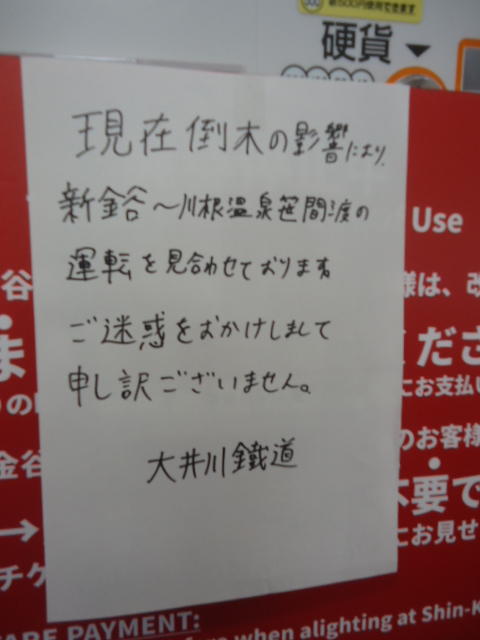 新500円使用できます
硬貨▼
現在倒木の影響により、
新金谷～川根温泉笹間渡の
運転を見合わせております
ご迷惑をおかけしまして
申し訳ございません。
大井川鐵道
Use
谷
様は、改
ま
ださ
にお支払い
金谷
のお客様
不要で
→
にお見せ
チケ
ARE PAYMENT:
when alighting at Shin-K